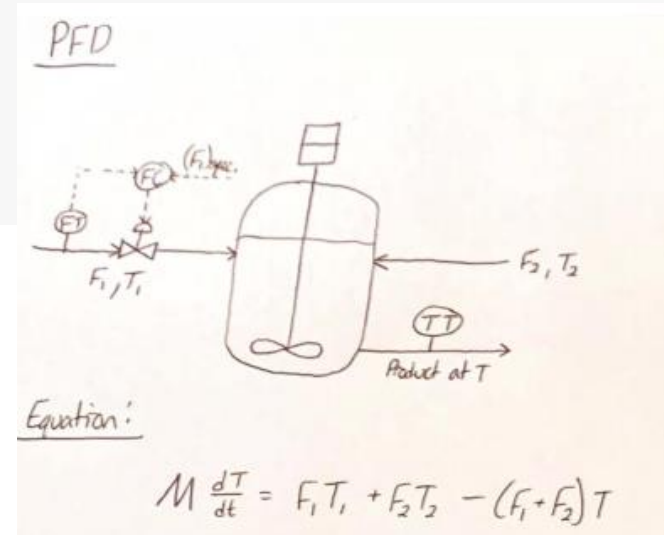 PFD
(F₁)spec.
FC
FT
F₁, T₁
F₂, T₂
TT
Product at T
Equation:
M dT/dt = F₁T₁ + F₂T₂ - (F₁+F₂)T